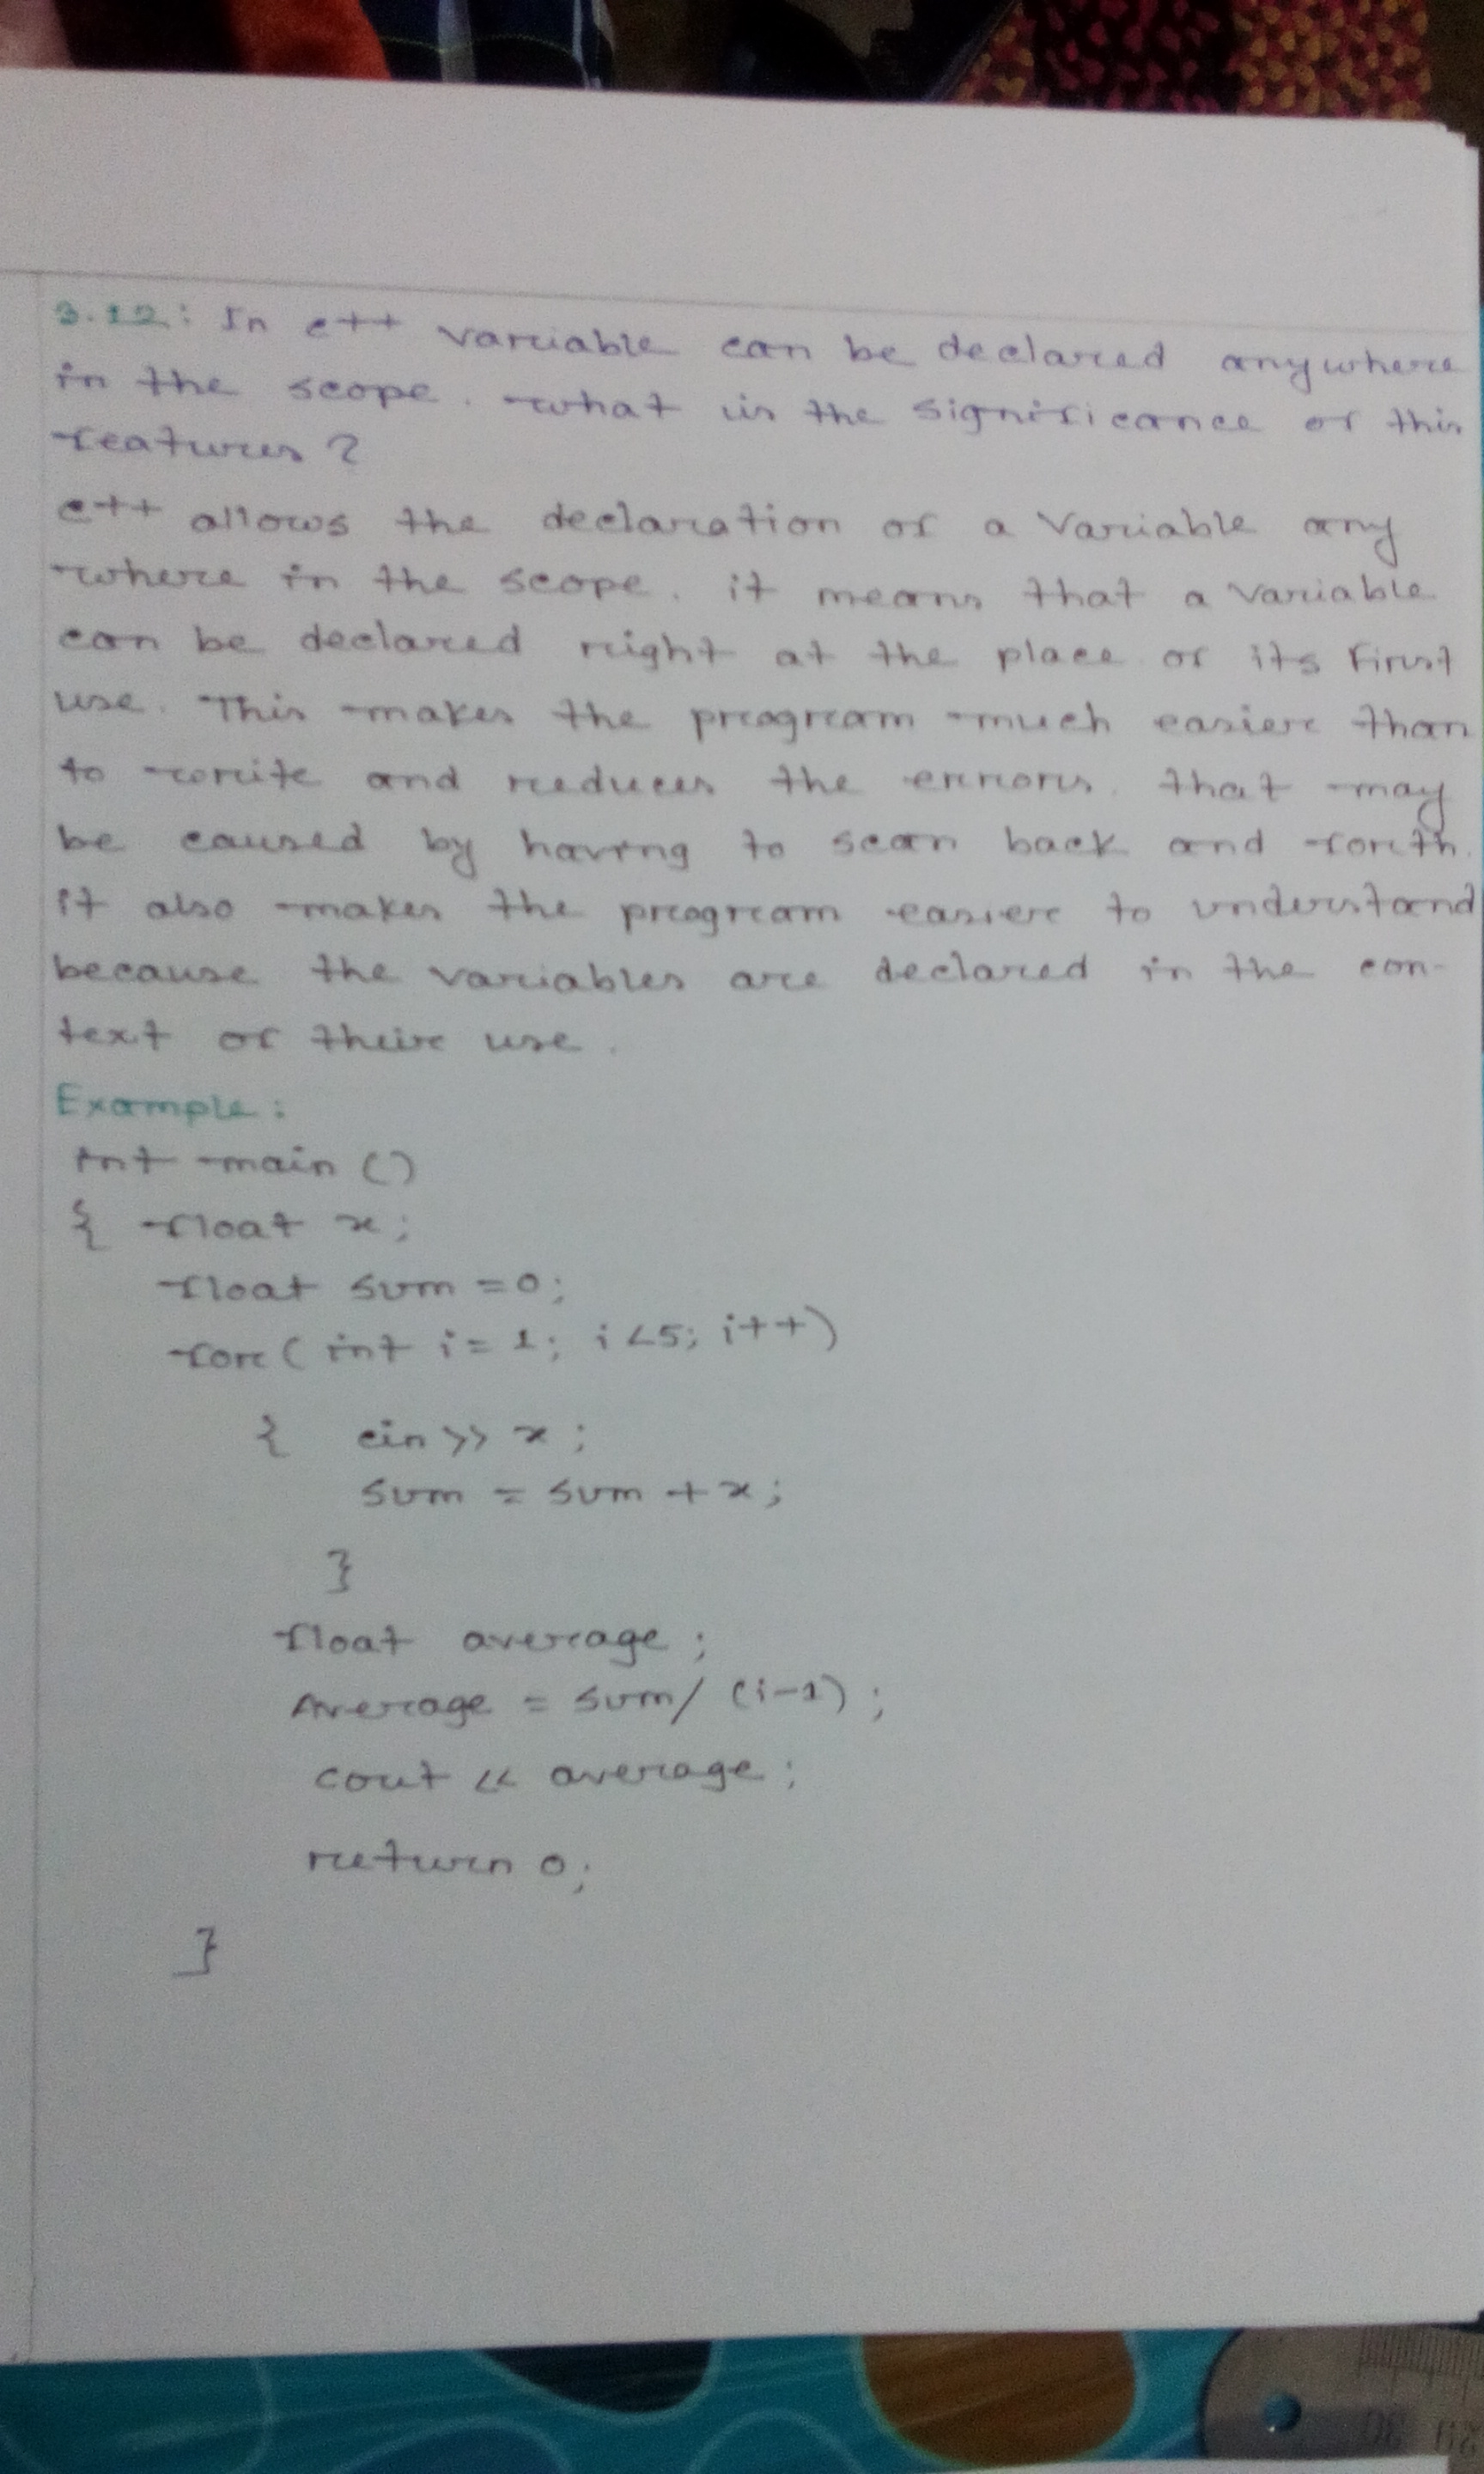 3.12: In c++ variable can be declared anywhere
in the scope. what is the significance of this
features?
c++ allows the declaration of a variable any
where in the scope. it means that a variable
can be declared right at the place of its first
use. This makes the program much easier than
to write and reduces the errors. that may
be caused by having to scan back and forth.
it also makes the program easier to understand
because the variables are declared in the con-
text of their use.
Example:
int main ()
{ float x;
float sum = 0;
for (int i = 1; i <5; i++)
{ cin >> x;
sum = sum + x;
}
float average;
Average = sum/ (i-1);
cout << average;
return 0;
}
30